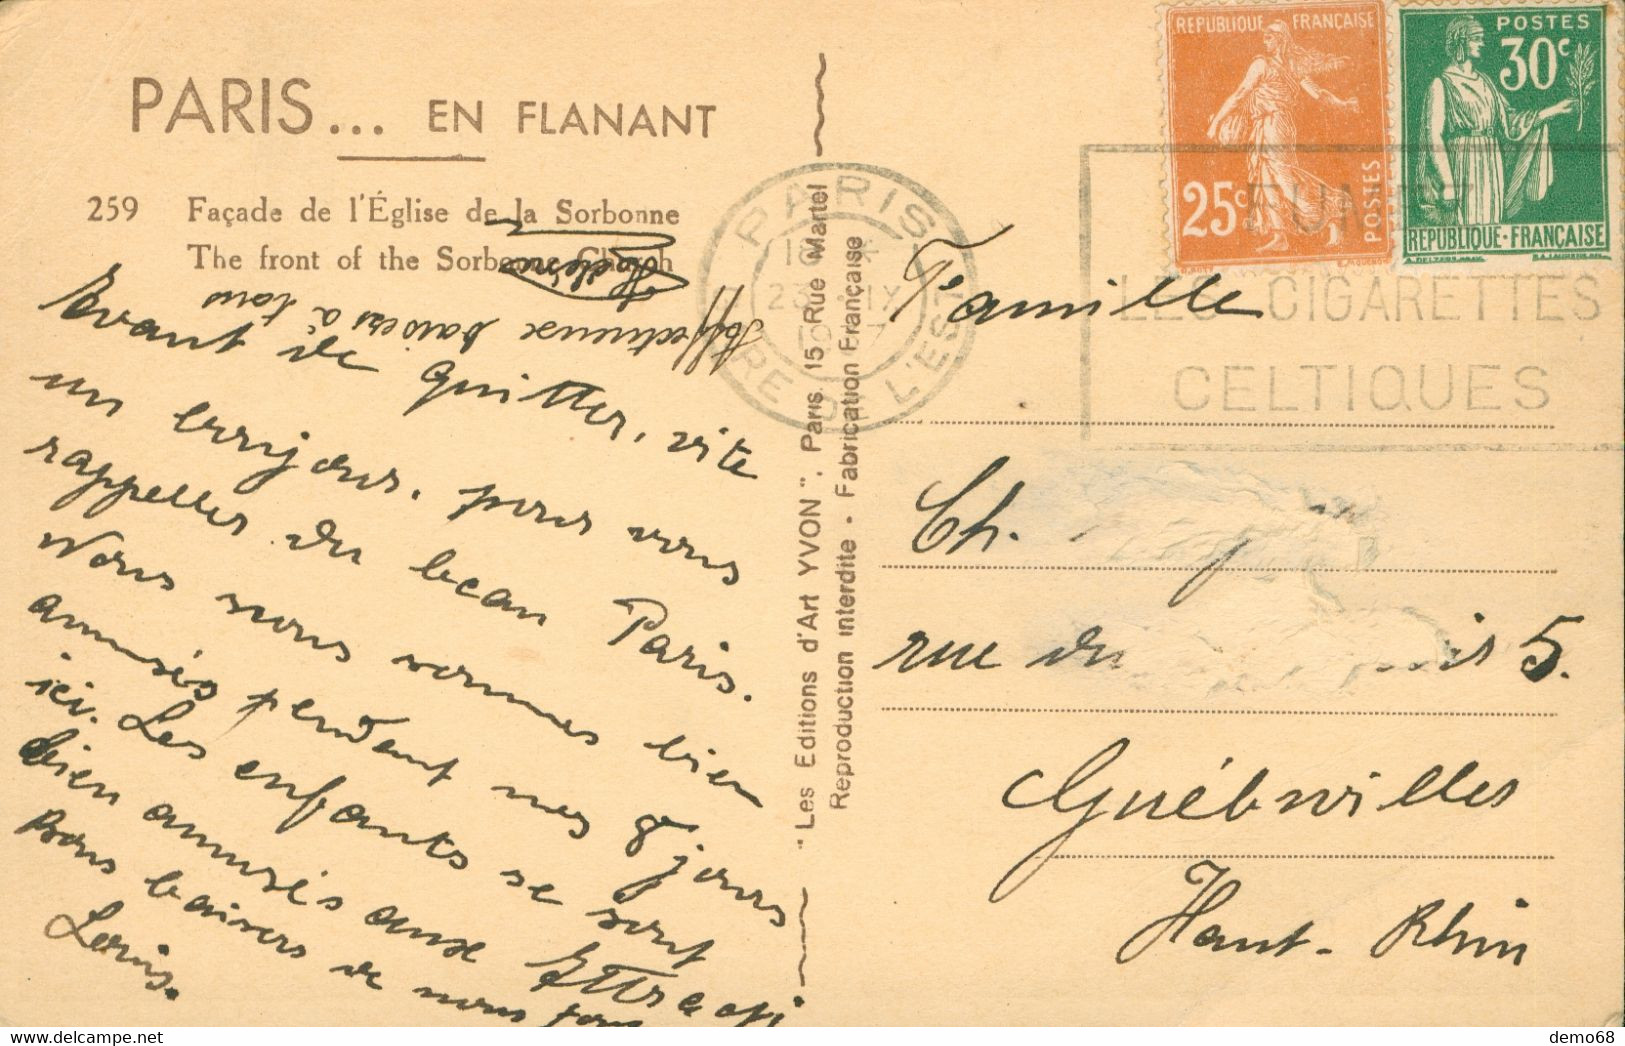 PARIS... EN FLANANT
259 Façade de l'Église de la Sorbonne
The front of the Sorbonne Church
Hélène
Affectueux baisers à tous
Avant de quitter, vite
un bonjour, pour vous
rappeller du beau Paris.
Nous nous sommes bien
amusés pendant nos 8 jours
ici. Les enfants se sont
bien amusés aux Attracti
Bons baisers de nous tous
Louis.
"Les Editions d'Art YVON". Paris. 15 Rue Martel
Reproduction interdite - Fabrication Française
PARIS
GARE DE L'EST
REPUBLIQUE FRANÇAISE
25c
POSTES
POSTES
30c
REPUBLIQUE-FRANÇAISE
FUMEZ
LES CIGARETTES
CELTIQUES
Famille
Ch.
rue du 5.
Guébwiller
Haut-Rhin
demo68